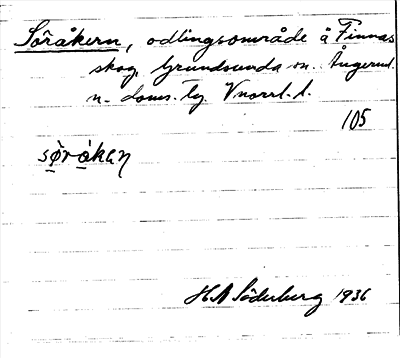 Söråkern, odlingsområde å Finnas
skog, Grundsunda sn. Ångerml.
n. doms. tg. Vnorrl. l.
105
sö̀råken
H A Söderberg 1936